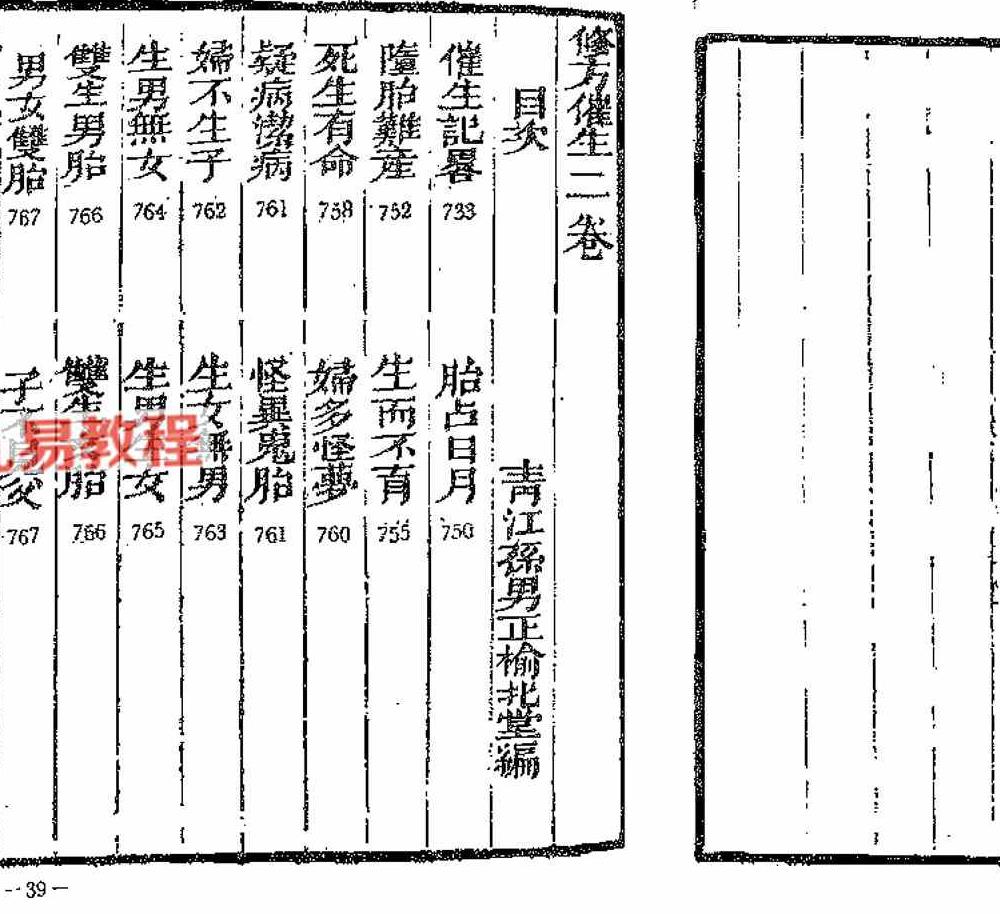 修方催生二卷
目次
青江孫男正榆北堂編
催生記畧 733
胎占日月 750
墮胎難產 752
生而不育 755
死生有命 758
婦多怪夢 760
疑病潔病 761
怪異鬼胎 761
婦不生子 762
生女無男 763
生男無女 764
生男 女 765
雙生男胎 766
雙生 胎 766
男女雙胎 767
767
易教程
--39-